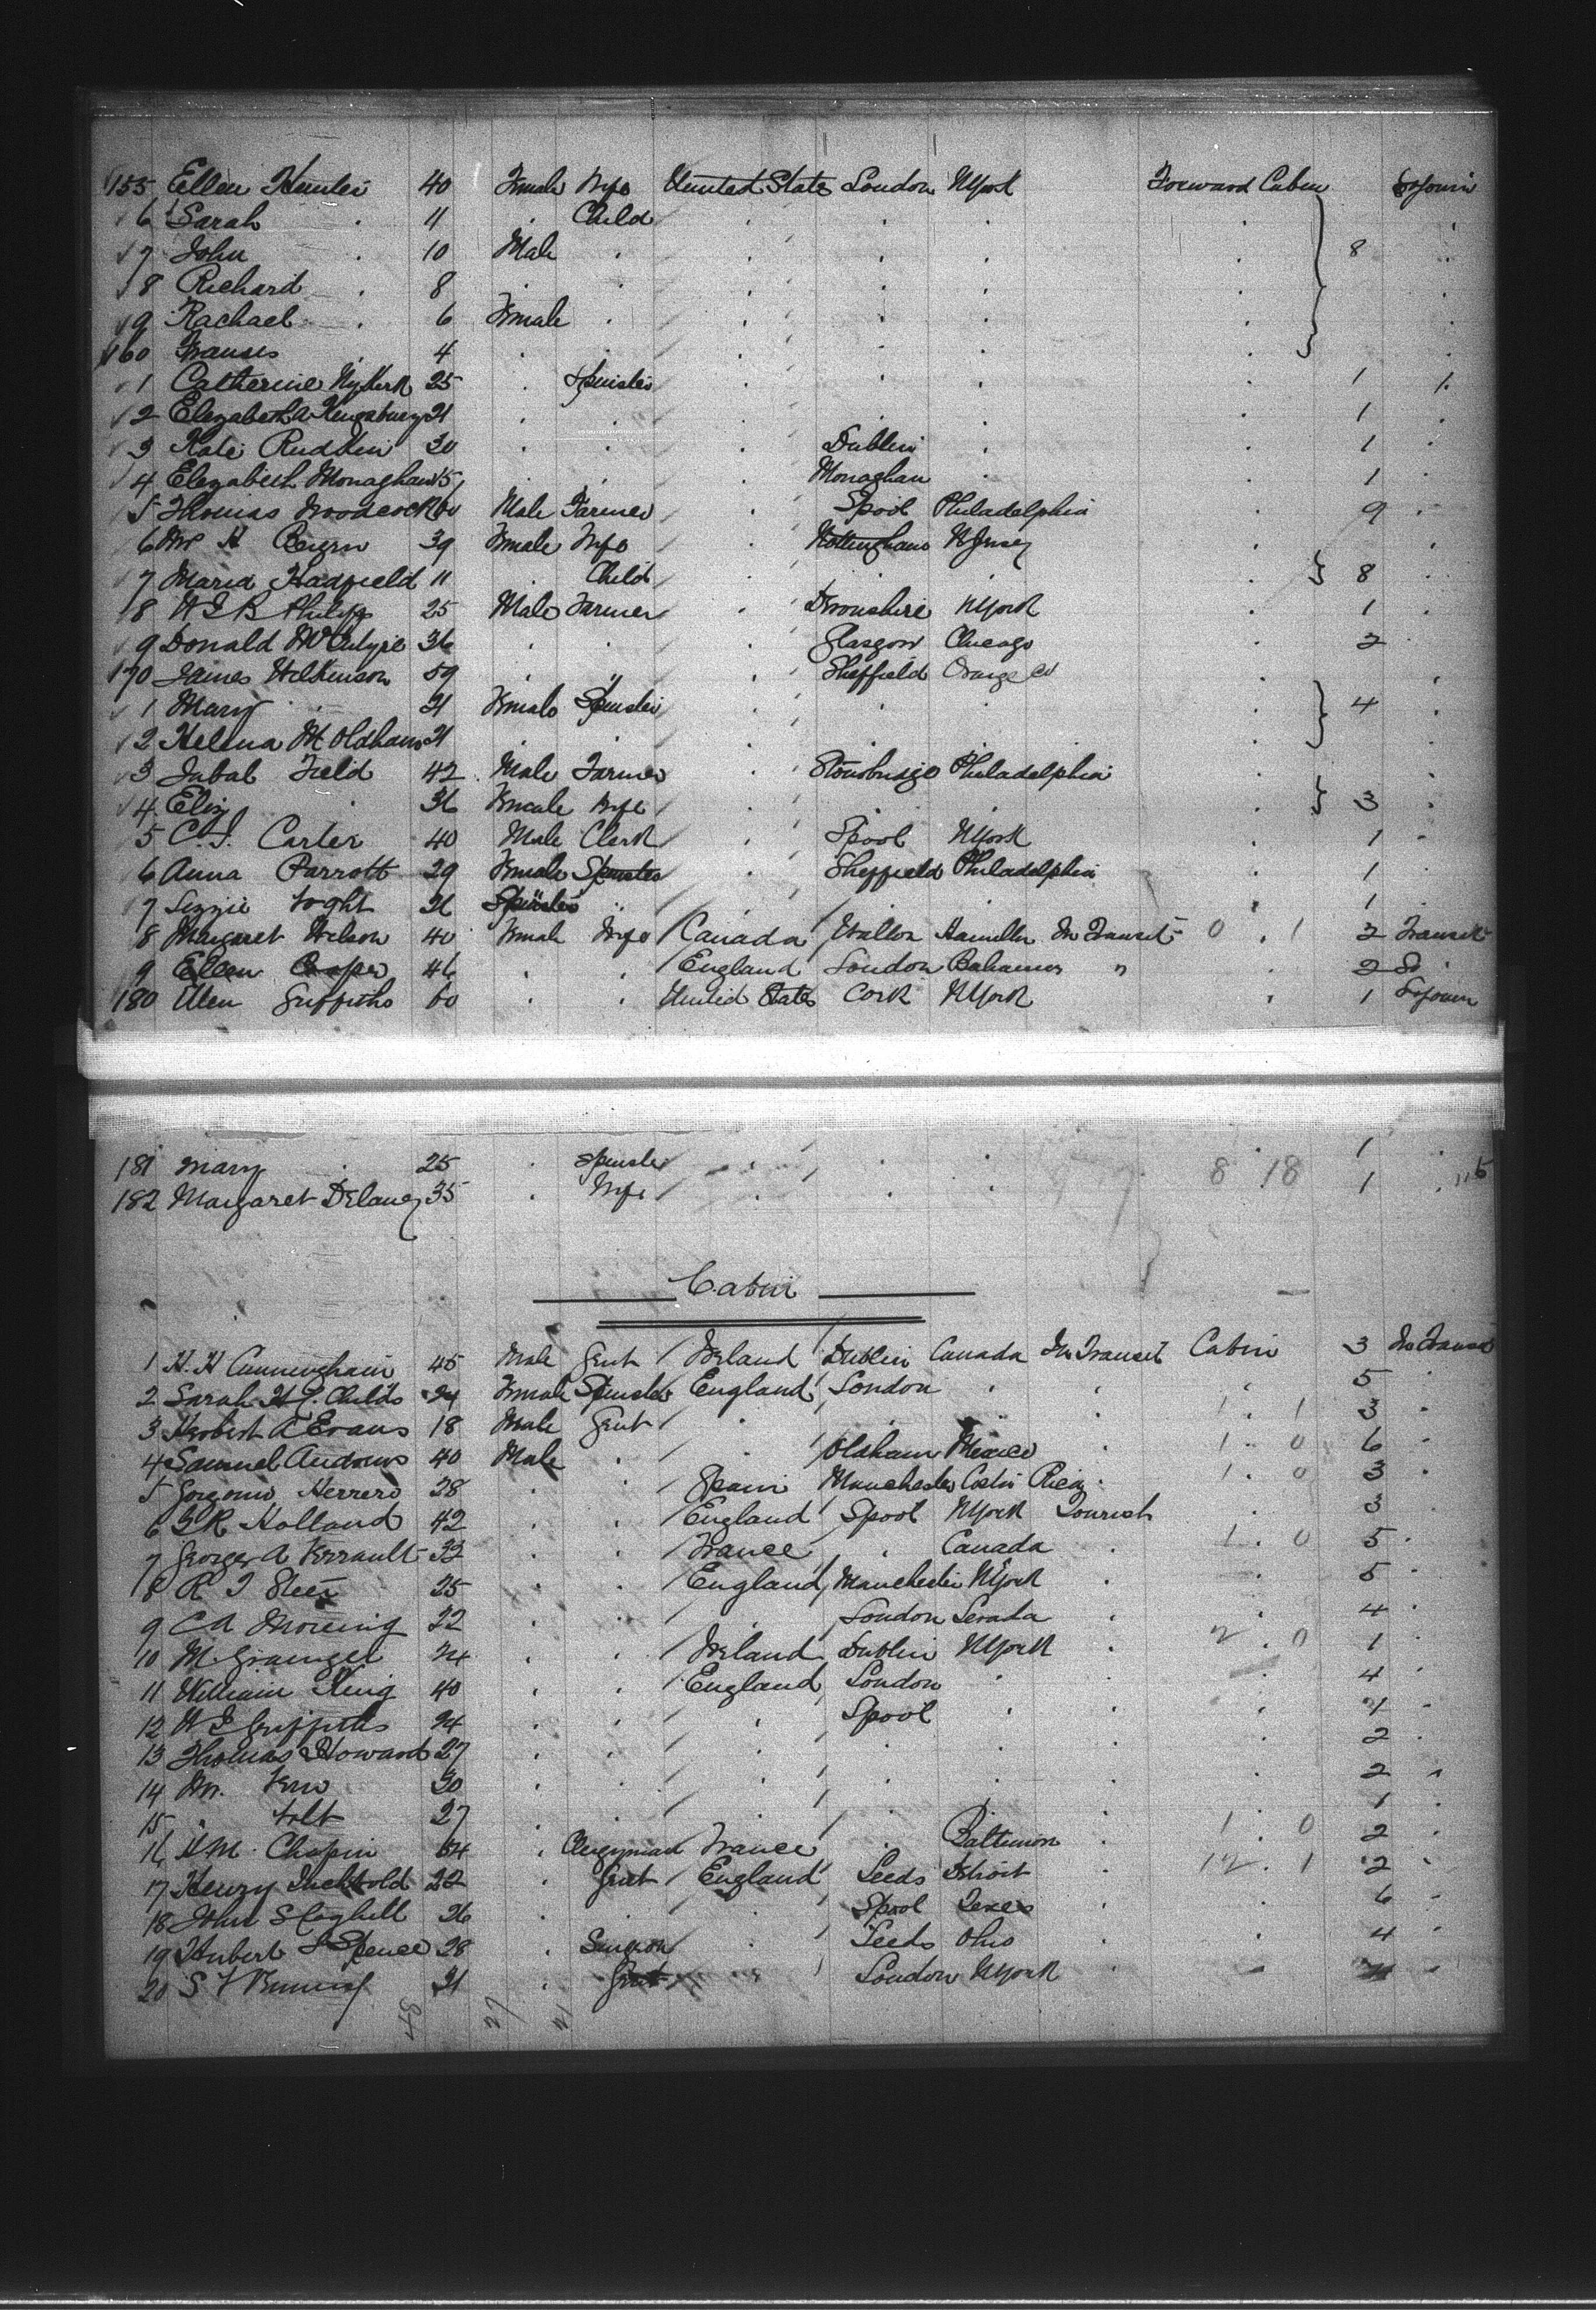 155 Ellen Hunter 40 Female Wife United States London NYork Forward Cabin Sojourn
6 Sarah . 11 . Child . . . .
7 John . 10 Male . . . . . 8 .
8 Richard . 8 . . . . . . .
9 Rachael . 6 Female . . . . . .
160 Franses . 4 . . . . . . .
1 Catherine 25 . Spinster . . . . 1
2 Elizabeth A Kengsbury 21 . . . . . . 1 .
3 Kate Rudkin 30 . . . Dublin . . 1 .
4 Elizabeth Monaghan 15 . . . Monaghan . . 1 .
5 Thomas Woodcock 60 Male Farmer . Lpool Philadelphia . 9 .
6 Mrs H 39 Female Wife . Nottingham NJersey .
7 Maria Hadfield 11 . Child . . . . 8 .
8 W E B Philips 25 Male Farmer . Devonshire NYork . 1 .
9 Donald McIntyre 36 . . . Glasgow Chicago . 2 .
170 James Wilkinson 59 . " . Sheffield Orange Co .
1 Mary . 21 Female Spinster . . . . 4 .
2 Helena M Oldham 21 . . . . . . .
3 Jabal Field 42 Male Farmer . Stourbridge Philadelphia .
4 Eliz . 36 Female Wife . . . . 3 .
5 C. J. Carter 40 Male Clerk . Lpool NYork . 1 .
6 Anna Parrott 29 Female Spinster . Sheffield Philadelphia 1 .
7 Lizzie 21 Spinster " . . . . 1 .
8 Margaret Wilson 40 Female Wife Canada Hamilton In Transit 0 . 1 2 Transit
9 Ellen Cooper 46 . . England London Bahamas " . 2 Do
180 Ellen Griffiths 60 . . United States Cork NYork . 1 Sojourn
181 Mary . 25 . Spinster . . . . 1 .
182 Margaret Delaney 35 . Wife . . . 8 18 1 .
Cabin
1 H. H Cunningham 45 Male Gent Ireland Dublin Canada In Transit Cabin 3 In Transit
2 Sarah H P. Childs 24 Female Spinster England London . . . 5 .
3 Herbert A Evans 18 Male Gent . . . . 1 . 1 3 .
4 Samuel Andrews 40 Male . . Oldham Mexico . 1 . 0 6 .
5 Gorgonio Herrero 28 . . Spain Manchester Costa Rica . 1 . 0 3 .
6 G R Holland 42 . . England Lpool NYork Tourist . 3 .
7 George A Perrault 32 . . France . Canada . 1 . 0 5 .
8 R J Steen 25 . . England Manchester NYork . . 5 .
9 C A Morning 22 . . . London . . 4 .
10 M. Grainger 24 . . Ireland Dublin NYork . 2 . 0 1 .
11 William King 40 . . England London . . . 4 .
12 W E Griffiths 24 . . . Lpool . . . 4 .
13 Thomas Howard 27 . . . . . . . 2 .
14 Mr. Kerr 30 . . . . . . . 2 "
15 . Holt 27 . . . . . . 1 .
16 H M. Chapin 64 . Clergyman France . Baltimore . 1 . 0 2 .
17 Henry Inchbold 22 . Gent England Leeds Detroit . 12 . 1 2 .
18 John S Coghill 26 . . . Lpool Texas . . 6 .
19 Hubert S Spence 28 . Surgeon . Leeds Ohio . . 4 .
20 S 21 . Gent . London NYork .